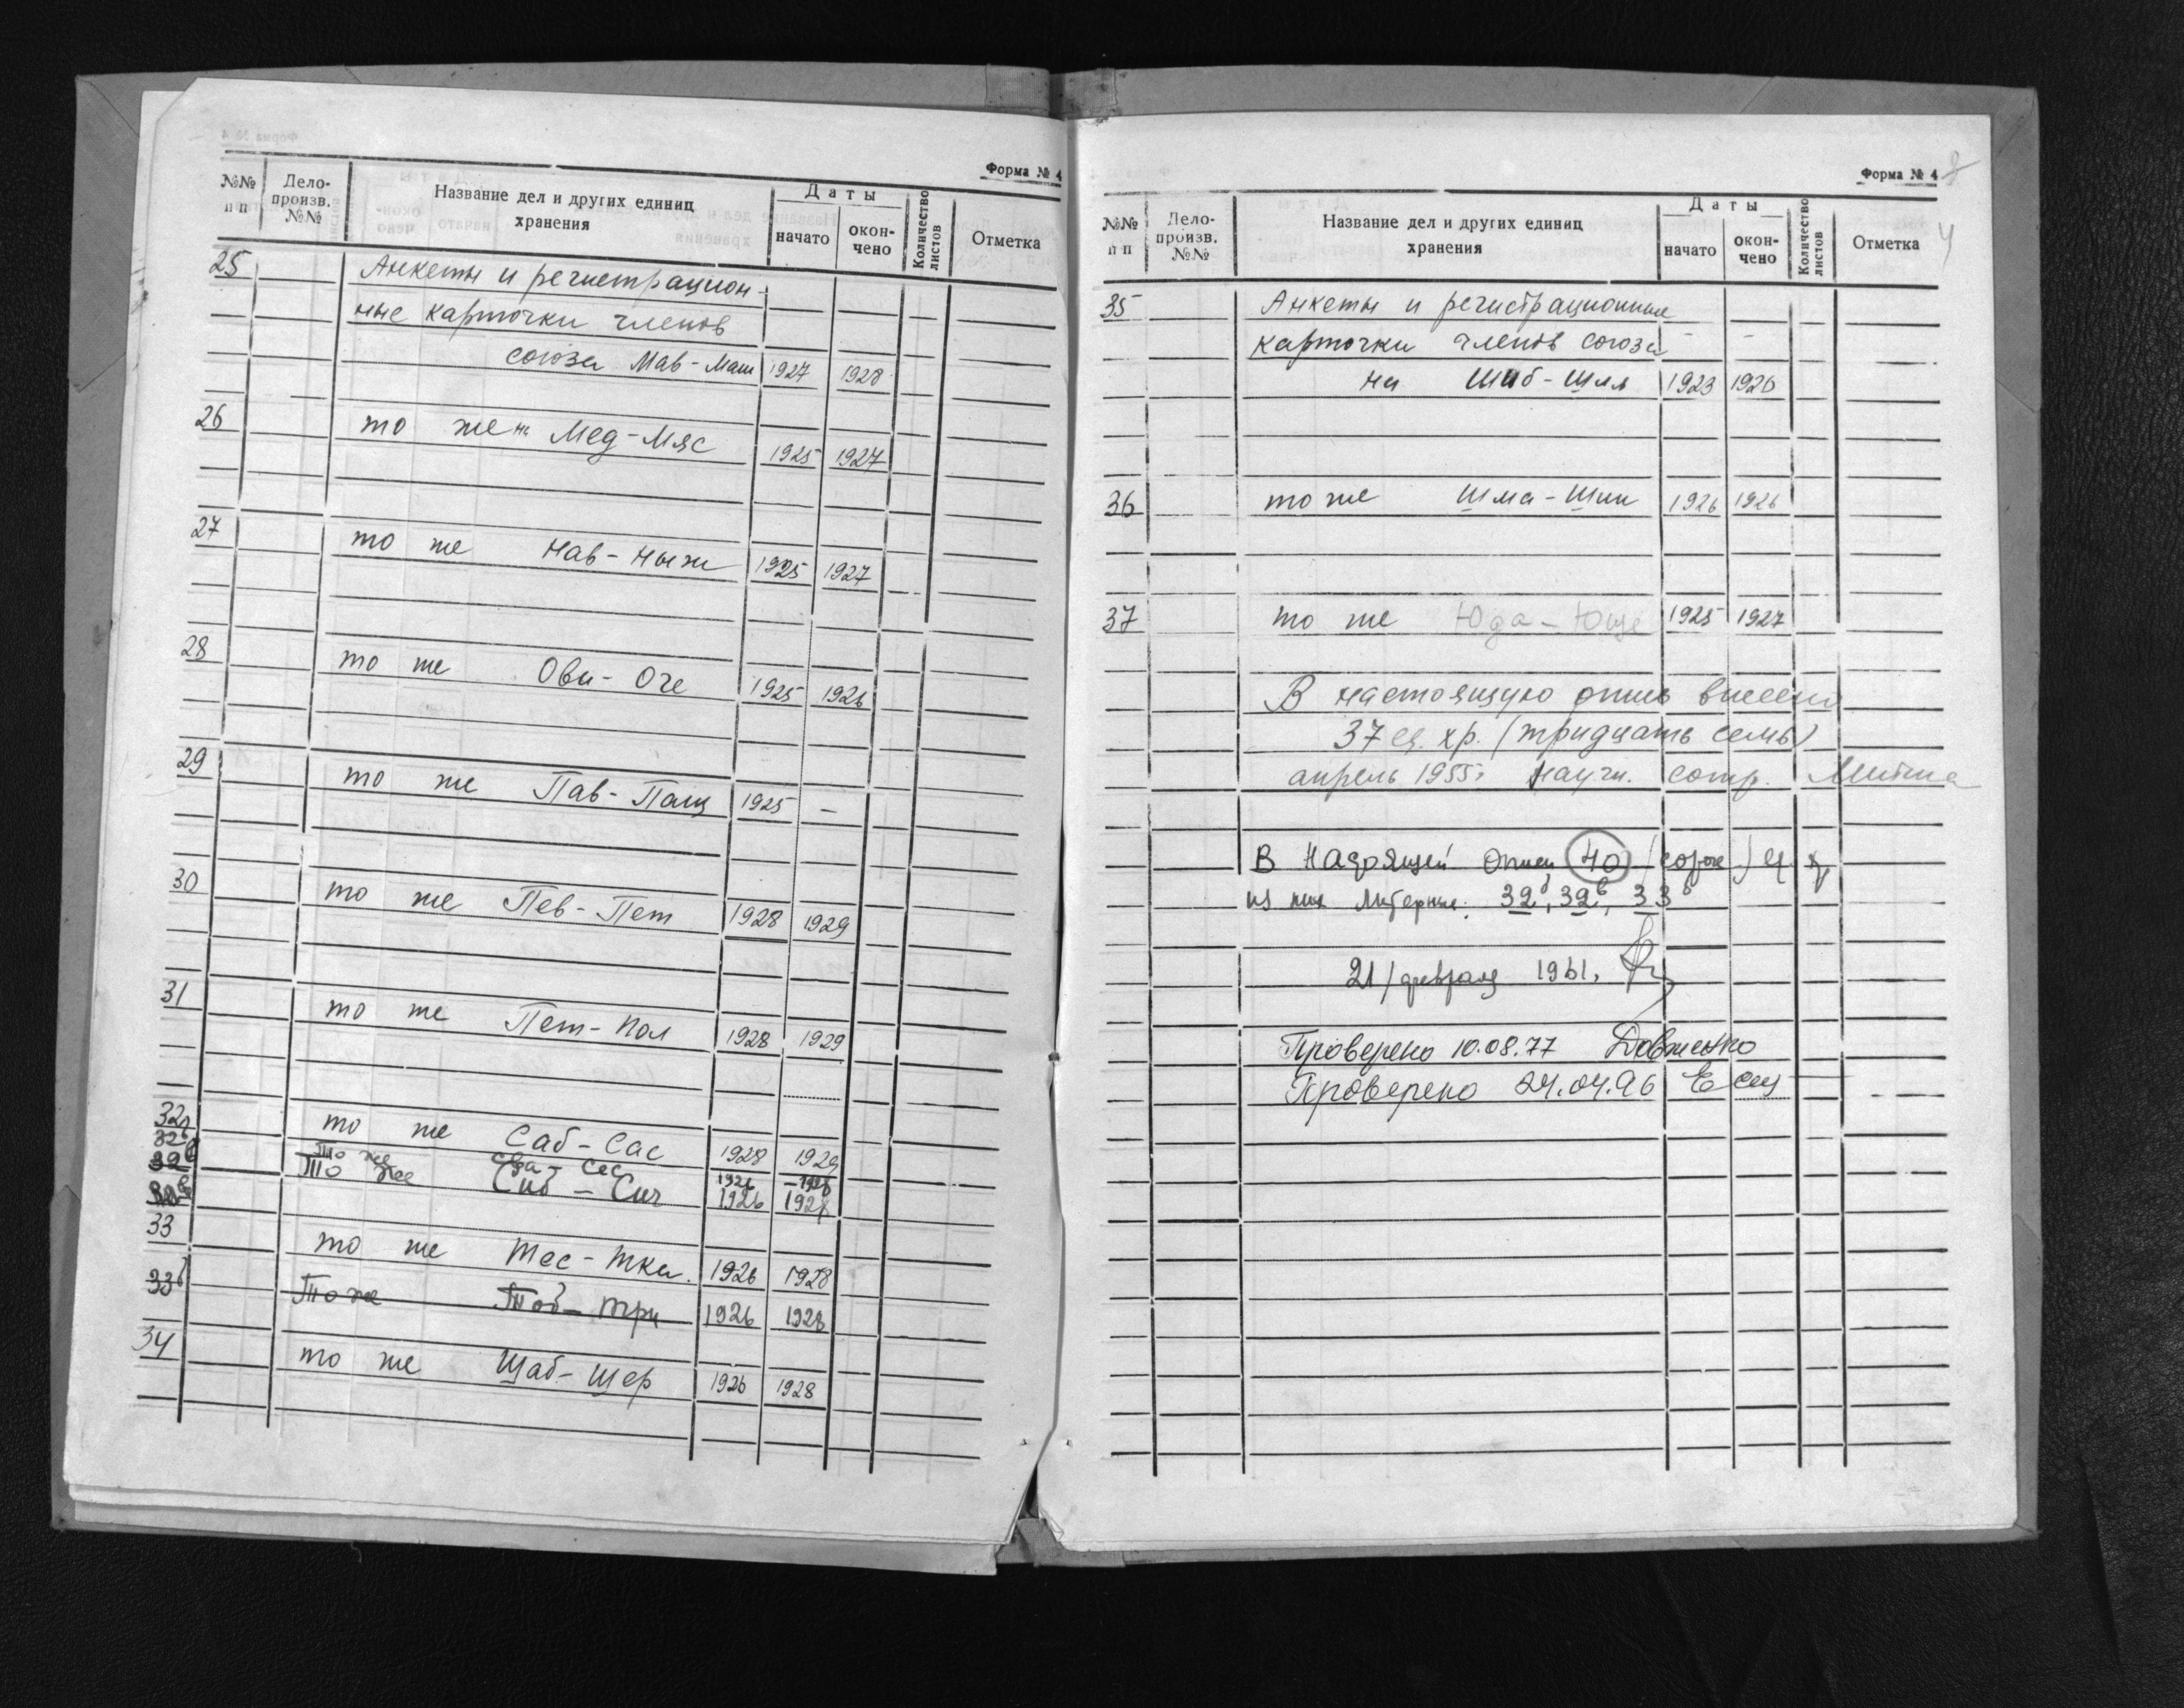 Форма № 4
№№ п п
Дело- произв. №№
Название дел и других единиц хранения
Даты
начато
окон- чено
Количество листов
Отметка
25 Анкеты и регистрацион-
ные карточки членов
союза Мав-Маш 1927 1928
26 то же на Мед-Мяс 1925 1927
27 то же Нав-Ныж 1925 1927
28 то же Ови-Оче 1925 1926
29 то же Пав-Пащ 1925 -
30 то же Пев-Пет 1928 1929
31 то же Пет-Пол 1928 1929
32 то же Саб-Сас 1928 1929
32б То же Сва-Сес 1926
То же Сиб-Сич 1926
33 то же Тес-Тка. 1926 1928
33б То же Тоб-Три 1926 1928
34 то же Щаб-Щер 1926 1928
Форма № 4 8
4
№№ п п
Дело- произв. №№
Название дел и других единиц хранения
Даты
начато
окон- чено
Количество листов
Отметка
35 Анкеты и регистрационные
карточки членов союза - -
на 1923 1926
36 то же Шма- 1926 1926
37 то же Юда-Юще 1925 1927
В настоящую опись внесено
37 ед. хр. (тридцать семь)
апрель 1955г научн. сотр.
В настоящей описи 40 (сорок)
из них литерные: 32б, 32в, 33б
21/февраля 1961.
Проверено 10.08.77 Довженко
Проверено 24.04.96